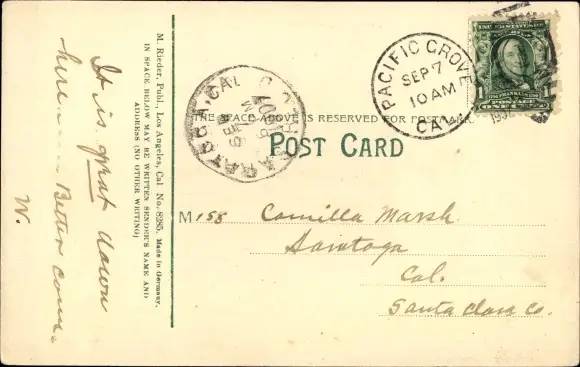 It is great down
here----- Better come.
W.
M. Rieder, Publ., Los Angeles, Cal. No. 8285. Made in Germany.
IN SPACE BELOW MAY BE WRITTEN SENDER'S NAME AND
ADDRESS (NO OTHER WRITING)
SARATOGA, CAL
SEP
PACIFIC GROVE
SEP 7
10 AM
CAL
190
FRANKLIN
POSTAGE
THE SPACE ABOVE IS RESERVED FOR POSTMARK.
POST CARD
M 158
Camilla Marsh.
Saratoga
Cal.
Santa Clara Co.